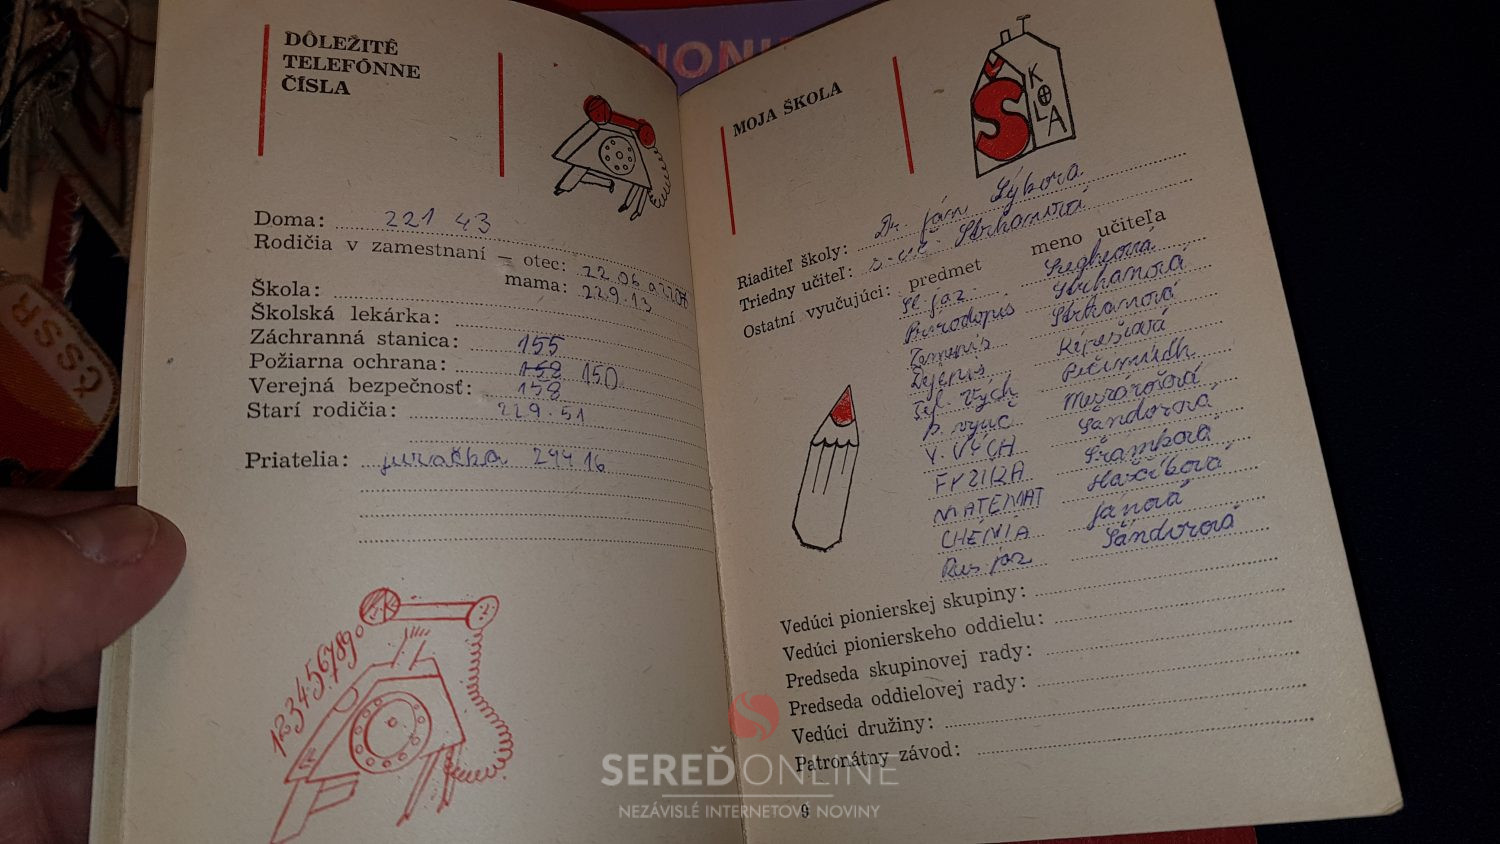 DÔLEŽITÉ
TELEFÓNNE
ČÍSLA
Doma: 221 43
Rodičia v zamestnaní — otec: 22.06
mama: 229.13
Škola:
Školská lekárka:
Záchranná stanica: 155
Požiarna ochrana: 150
Verejná bezpečnosť: 158
Starí rodičia: 229.51
Priatelia: juračka 244 16
1234567890
PIONI
ŠKOLA
MOJA ŠKOLA
Riaditeľ školy: Dr. Ján Sýkora
Triedny učiteľ: Strhanová
Ostatní vyučujúci: predmet meno učiteľa
Sl. jaz. Szegheová
Prírodopis Strhanová
Zemepis Strhanová
Dejepis
Tel. vých
p. vyuč Mesárošová
V. VÝCH Šándorová
FYZIKA Šramková
MATEMAT Haxčíková
CHÉMIA Jánová
Rus. jaz Šándorová
Vedúci pionierskej skupiny:
Vedúci pionierskeho oddielu:
Predseda skupinovej rady:
Predseda oddielovej rady:
Vedúci družiny:
Patronátny závod:
9
ČSSR
SEREĎ ONLINE
NEZÁVISLÉ INTERNETOVÉ NOVINY